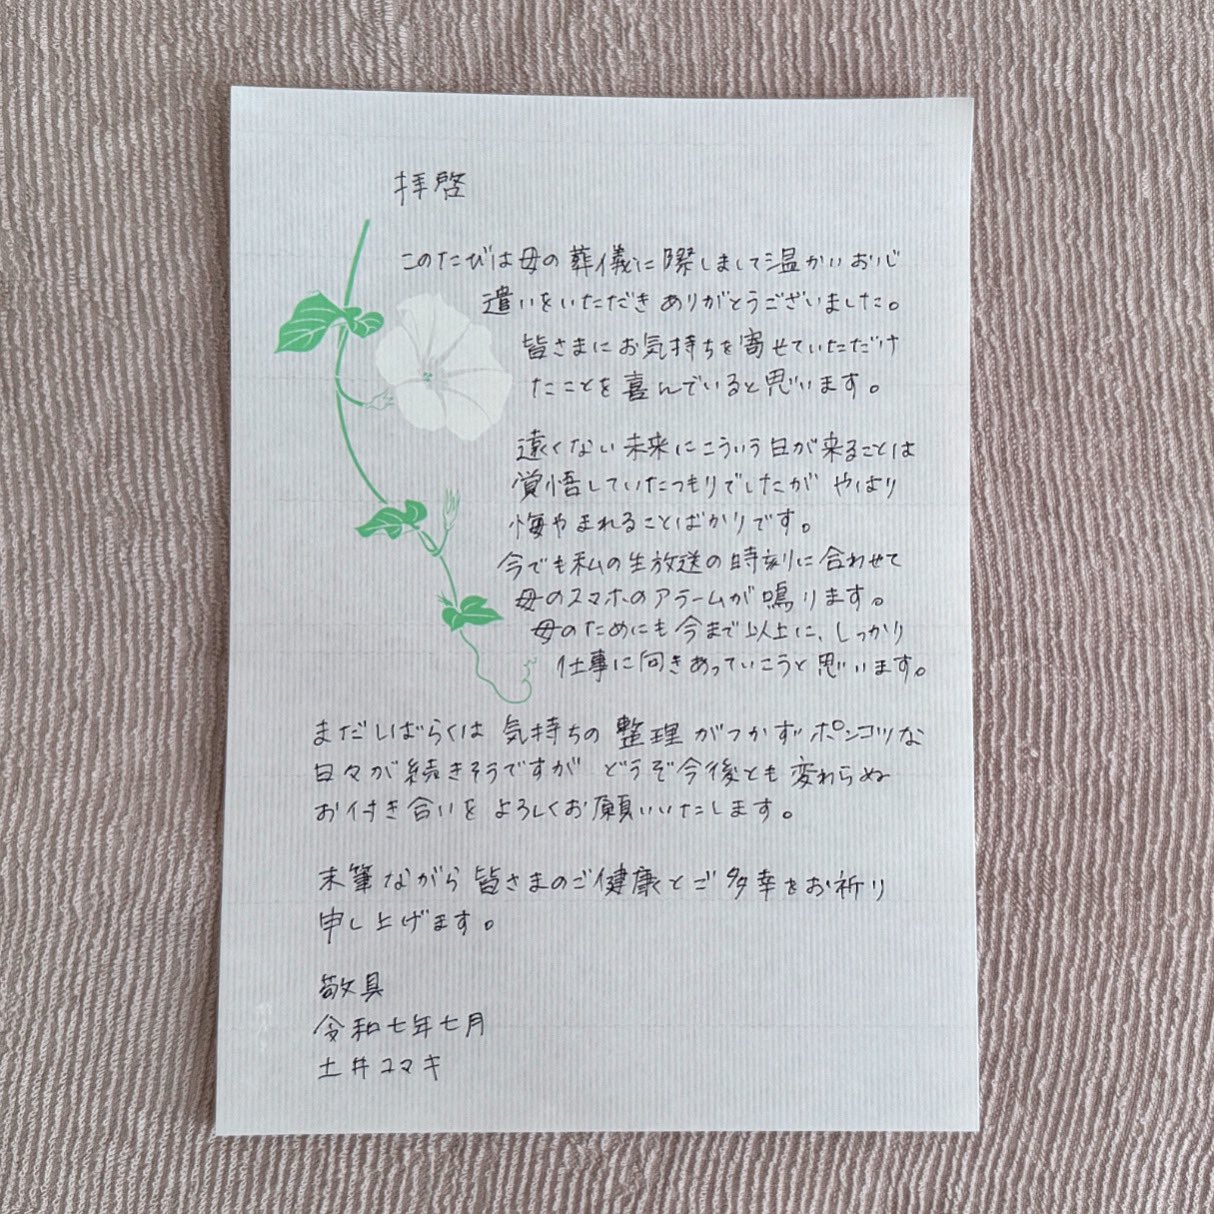 拝啓
このたびは母の葬儀に際しまして温かいお心
遣いをいただきありがとうございました。
皆さまにお気持ちを寄せていただけ
たことを喜んでいると思います。
遠くない未来にこういう日が来ることは
覚悟していたつもりでしたが やはり
悔やまれることばかりです。
今でも私の生放送の時刻に合わせて
母のスマホのアラームが鳴ります。
母のためにも今まで以上に、しっかり
仕事に向きあっていこうと思います。
まだしばらくは 気持ちの整理がつかず ポンコツな
日々が続きそうですが どうぞ今後とも変わらぬ
お付き合いを よろしくお願いいたします。
末筆ながら 皆さまのご健康とご多幸をお祈り
申し上げます。
敬具
令和七年七月
土井コマキ